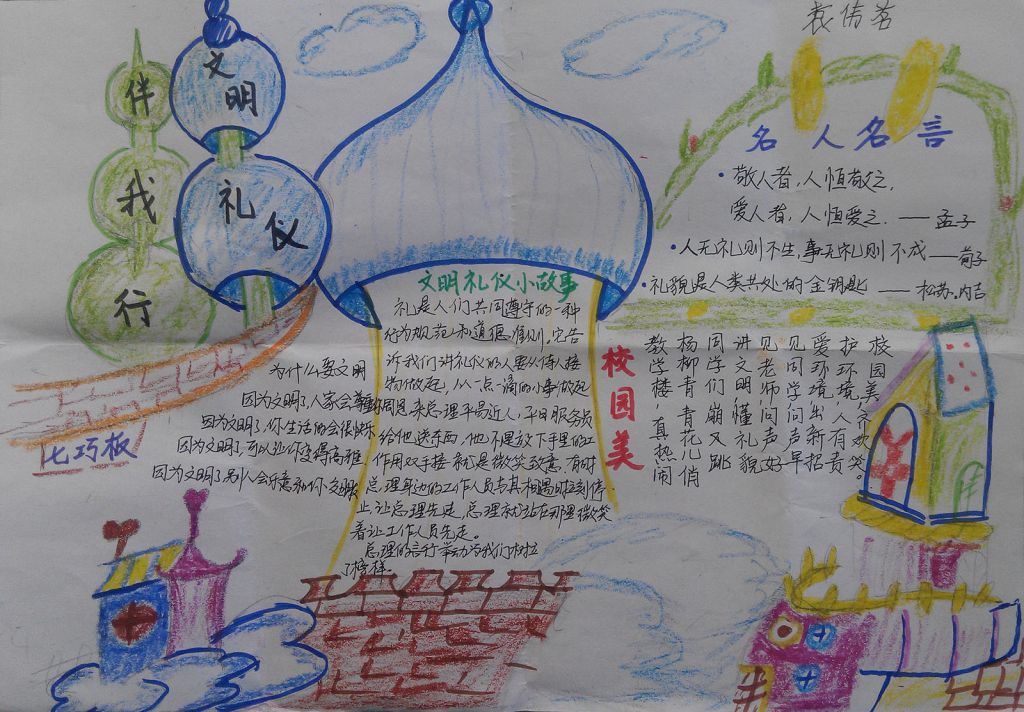 文明
礼仪
伴
我
行
名人名言
·敬人者,人恒敬之,
爱人者,人恒爱之.——孟子
·人无礼则不生,事无礼则不成——荀子
·礼貌是人类共处的金钥匙——松苏内吉
文明礼仪小故事
礼是人们共同遵守的一种
行为规范和道德准则。它告
诉我们讲礼仪的人要从待人接
物做起,从一点一滴的小事做起
周恩来总理平易近人,平日服务员
给他送东西,他不是放下手里的工
作用双手接就是微笑致意.有时
总理身边的工作人员与其相遇时立刻停
止让总理先走,总理就站在那里微笑
着让工作人员先走。
总理的言行举动为我们树立
了榜样。
为什么要文明
因为文明了人家会尊重你
因为文明了,你生活的会很快乐
因为文明了,可以让你变得高雅
因为文明了别人会乐意和你
七巧板
校园美
教学楼,真热闹
杨柳青青花儿俏
同学们崩又跳
讲文明懂礼貌
见老师问声好
见同学问声早
爱环境出新招
护环境,人有责
校园美齐欢笑。